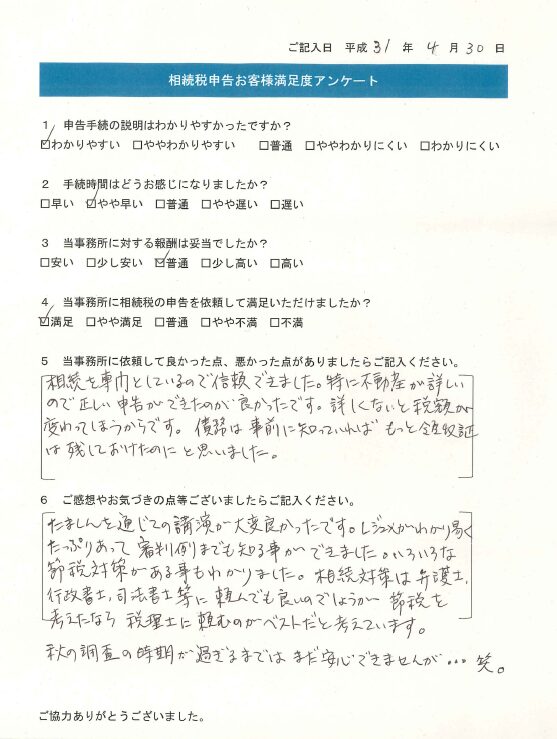 ご記入日 平成 31 年 4 月 30 日
相続税申告お客様満足度アンケート
1 申告手続の説明はわかりやすかったですか?
☑わかりやすい □ややわかりやすい □普通 □ややわかりにくい □わかりにくい
2 手続時間はどうお感じになりましたか?
□早い ☑やや早い □普通 □やや遅い □遅い
3 当事務所に対する報酬は妥当でしたか?
□安い □少し安い ☑普通 □少し高い □高い
4 当事務所に相続税の申告を依頼して満足いただけましたか?
☑満足 □やや満足 □普通 □やや不満 □不満
5 当事務所に依頼して良かった点、悪かった点がありましたらご記入ください。
相続を専門としているので信頼できました。特に不動産が詳しい
ので正しい申告ができたのが良かったです。詳しくないと税額が
変わってしまうからです。債務は事前に知っていればもっと領収証
は残しておけたのにと思いました。
6 ご感想やお気づきの点等ございましたらご記入ください。
たましんを通じての講演が大変良かったです。レジュメがわかり易く
たっぷりあって審判例までも知る事ができました。いろいろな
節税対策がある事もわかりました。相続対策は弁護士,
行政書士,司法書士等に頼んでも良いのでしょうが節税を
考えたなら税理士に頼むのがベストだと考えています。
秋の調査の時期が過ぎるまではまだ安心できませんが…笑。
ご協力ありがとうございました。